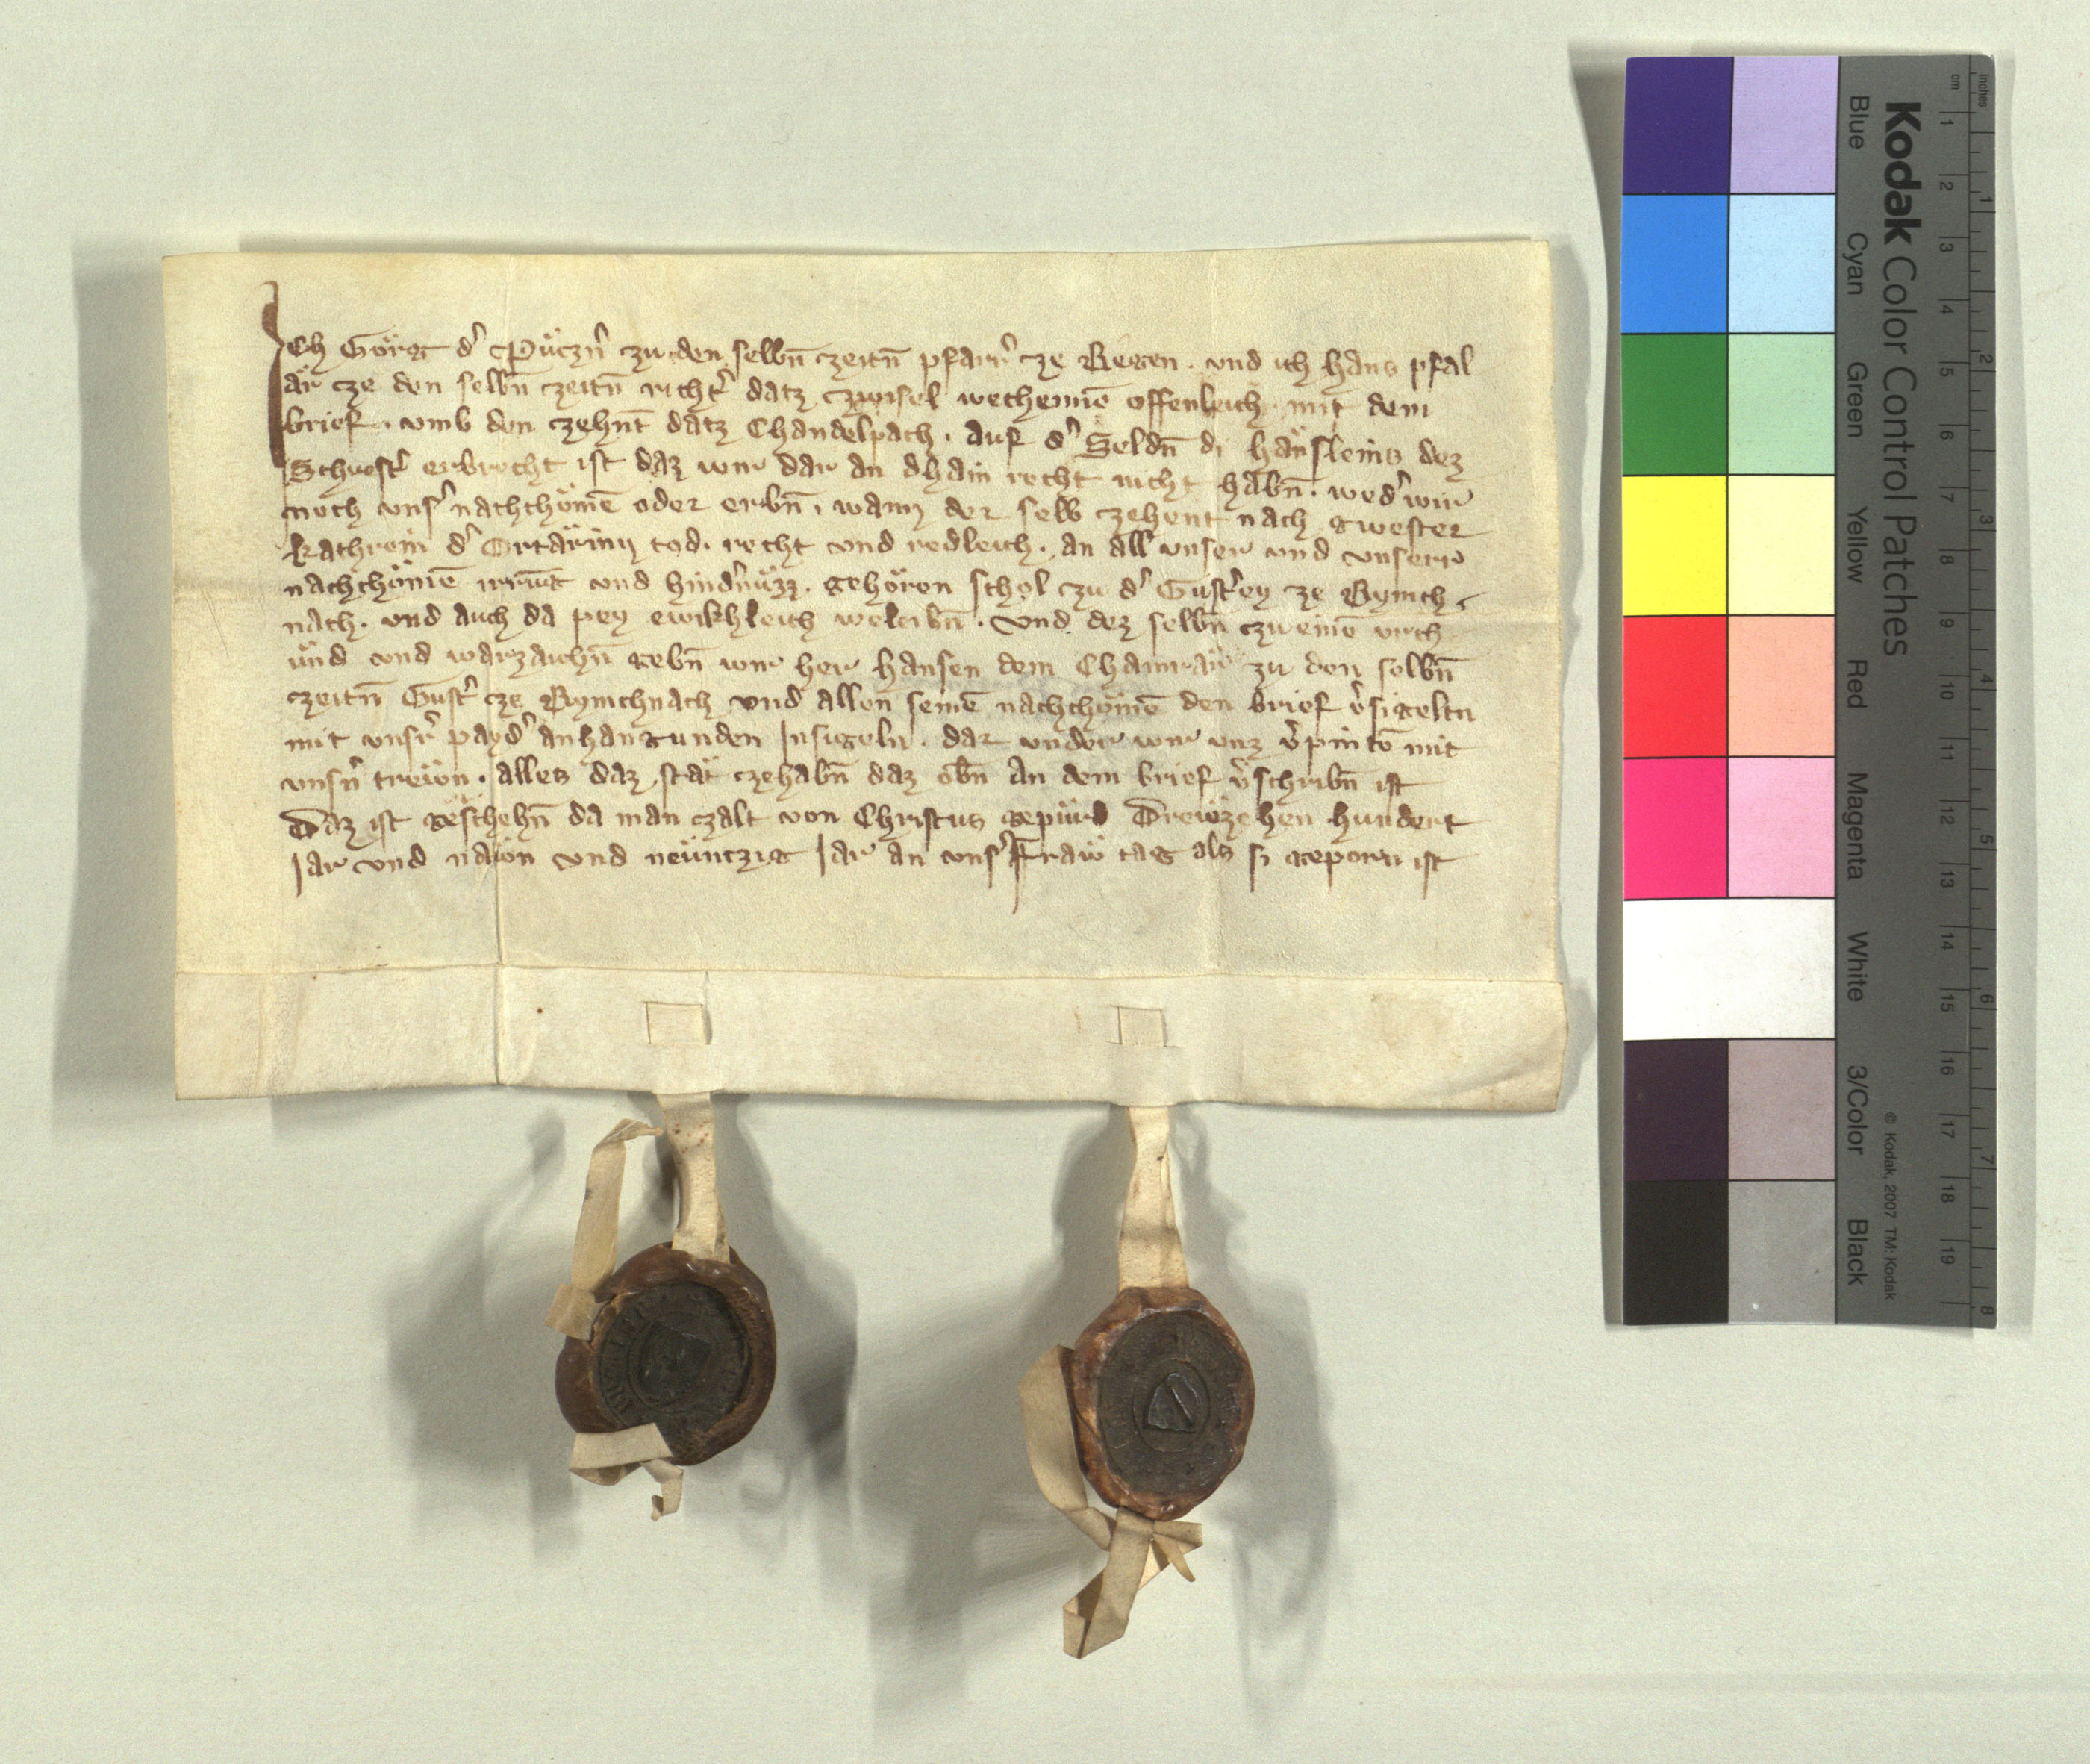 Ich Görig d' Püczn' zu den selbn̄ czeitn̄ pfarr' cze Regen. vnd ich hans pfal
är cze den selbn̄ czeitn̄ richt' datz czwisel wechennē offenleich mit dem
brief. vmb den czehnt datz Chandelpach. auf d' Seldn̄ di hänsleins dez
Schuest' erbrecht ist daz wir dar an dhain recht nicht habn̄. wed' wir
noch vns' nachchömē oder erbn̄. wann der selb czehent nach swester
kathrein d' Ortärinn tod. recht vnd redleich. an all vnser vnd vnserr
nachchömē vnd hind'nüzz. gehören schol czu d' Gust'ey ze Rymch
nach. vnd auch da pey ewikhleich weleibn̄. Vnd dez selbn̄ czu einē vrch
ünd vnd warzaichn̄ gebn̄ wir her hansen dem Chamrär zu den selbn̄
czeitn̄ Gust' cze Rymchnach vnd allen seinē nachchömē den brief v'sigeltn
mit vns'r payd' anhangunden Insigeln. dar vnder wir vnz v'pintē mit
vnsn' trewn. alles daz stät czehabn̄ daz obn̄ An dem brief v'schribn̄ ist
Daz ist geschehn̄ da man czalt von Christus gepürd Drewzehen hundert
Iar vnd näwn vnd newntzig Iar an vns' Fraw tag als si geporn ist
Kodak Color Control Patches
Blue Cyan Green Yellow Red Magenta White 3/Color Black
© Kodak, 2007 TM: Kodak
inches 1 2 3 4 5 6 7 8
cm 1 2 3 4 5 6 7 8 9 10 11 12 13 14 15 16 17 18 19